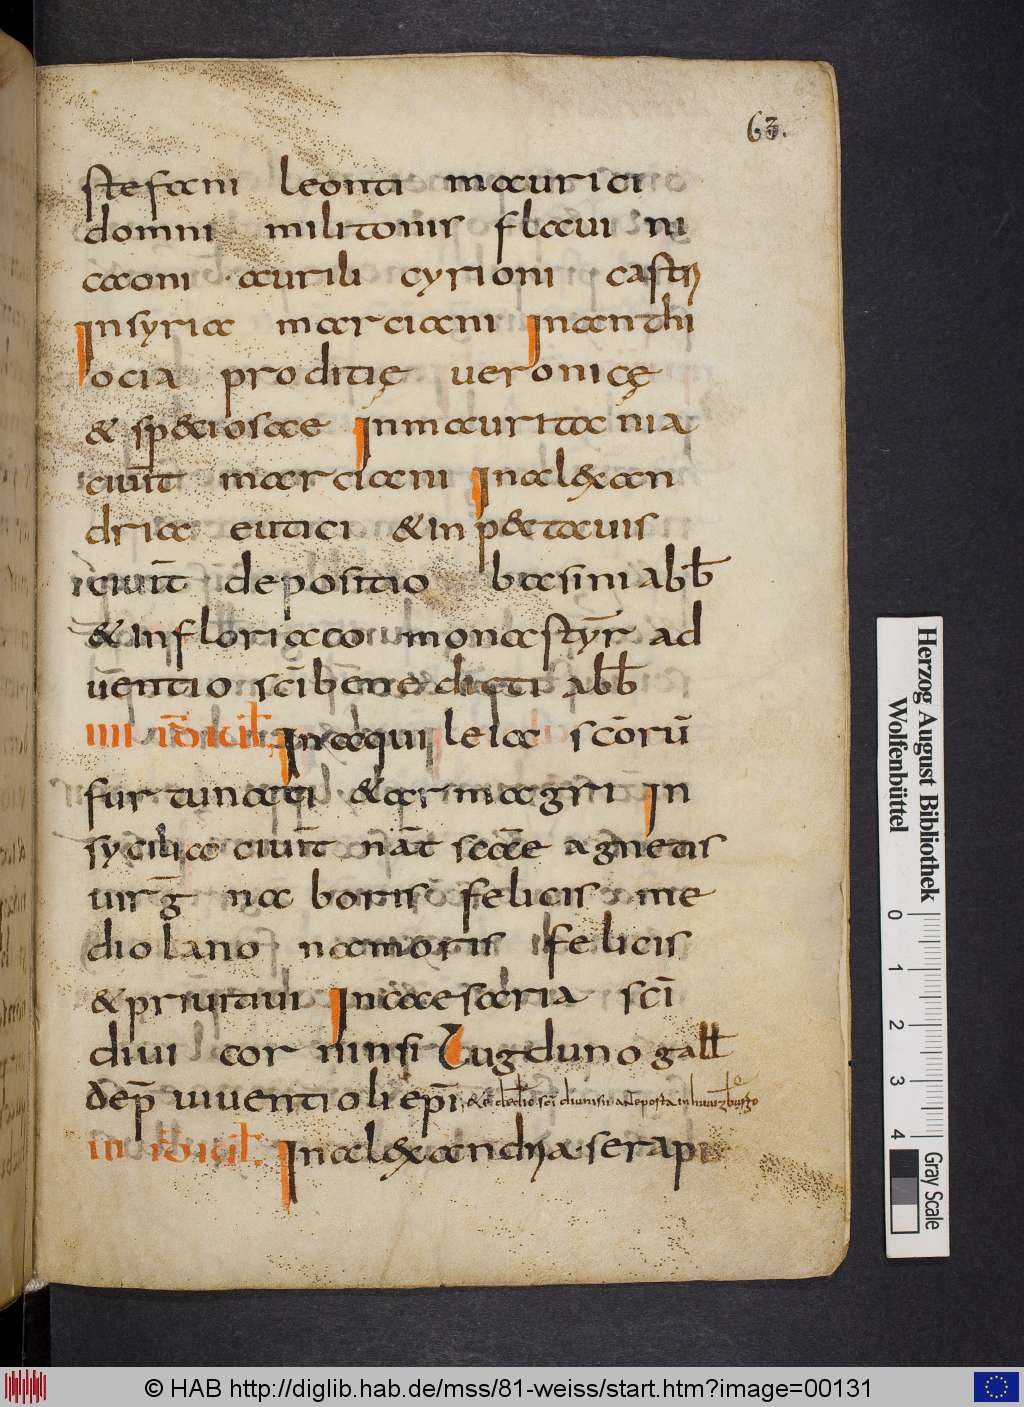 63.
stefani leonti maurici
domni militonis flavui ni
caoni aurili cyrioni castri
In syria marciani In anthi
ocia proditię veronicę
& sp&ciosae In mauritania
ciuit̄ marciani In alexan
dria eutici & in p&tauis
ciuit̄ depositio basini abb̄
& in floriaco monastȳr ad
uēntio sc̄i benedicti abb̄
IIII id̄ iul̄. In aquileia sc̄orū
furtunati & armagri In
sycilia ciuit̄ nat̄ scāe agnetis
uirḡ naboris felicis me
diolano namoris felicis
& priuitiui In caesaria sc̄i
diui cor ninsi Lugduno gall̄
dep̄ uiuentioli ep̄i & dedic̄o sc̄i dionisii a deposta in huuirzburgo
III id̄ iul̄. In alexandria. serapi
Herzog August Bibliothek
Wolfenbüttel
0 1 2 3 4
Gray Scale
© HAB http://diglib.hab.de/mss/81-weiss/start.htm?image=00131